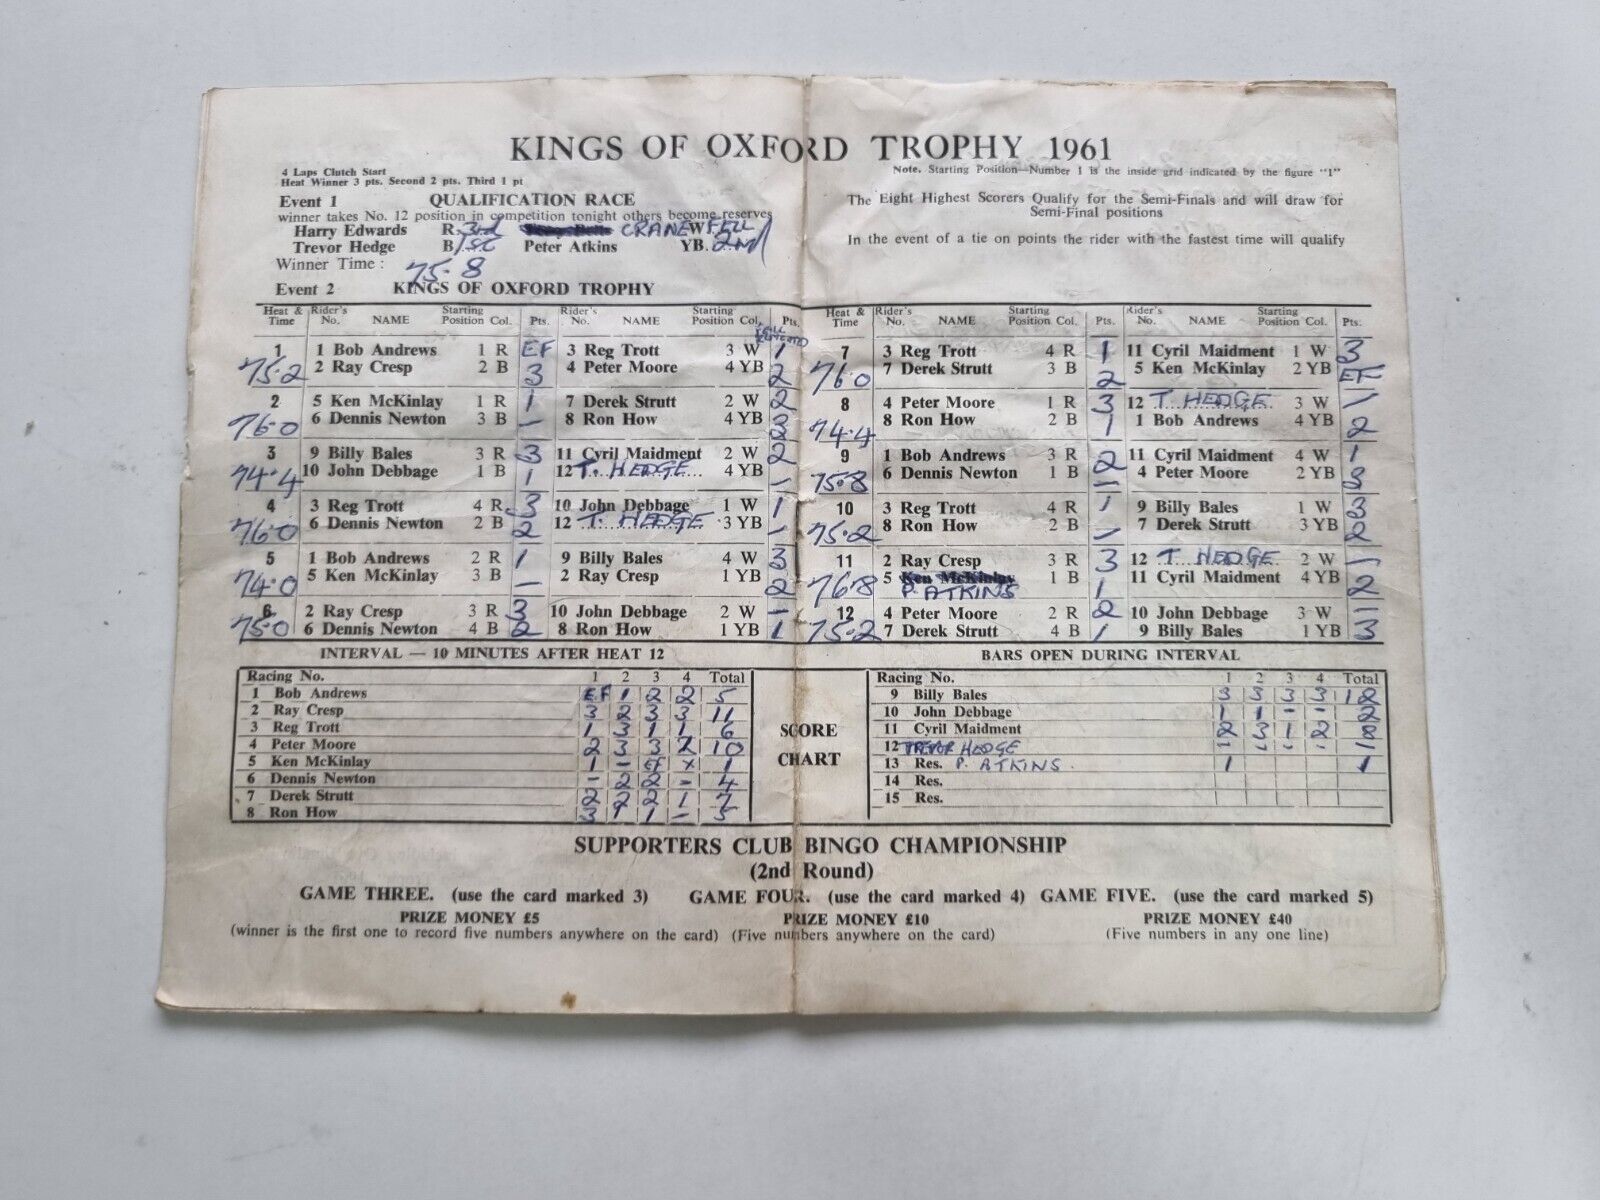 KINGS OF OXFORD TROPHY 1961
4 Laps Clutch Start
Heat Winner 3 pts. Second 2 pts. Third 1 pt
Note. Starting Position—Number 1 is the inside grid indicated by the figure "1"
Event 1 QUALIFICATION RACE
winner takes No. 12 position in competition tonight others become reserves
Harry Edwards R. 3rd CRANE W FELL
Trevor Hedge B/1st Peter Atkins YB. 2nd
Winner Time : 75.8
The Eight Highest Scorers Qualify for the Semi-Finals and will draw for
Semi-Final positions
In the event of a tie on points the rider with the fastest time will qualify
Event 2 KINGS OF OXFORD TROPHY
Heat & Time Rider's No. NAME Starting Position Col. Pts. Rider's No. NAME Starting Position Col. Pts.
1 1 Bob Andrews 1 R EF 3 Reg Trott 3 W 1
75.2 2 Ray Cresp 2 B 3 4 Peter Moore 4 YB 2
2 5 Ken McKinlay 1 R 1 7 Derek Strutt 2 W 2
76.0 6 Dennis Newton 3 B - 8 Ron How 4 YB 3
3 9 Billy Bales 3 R 3 11 Cyril Maidment 2 W 2
74.4 10 John Debbage 1 B 1 12 T. HEDGE 4 YB -
4 3 Reg Trott 4 R 3 10 John Debbage 1 W 1
76.0 6 Dennis Newton 2 B 2 12 T. HEDGE 3 YB -
5 1 Bob Andrews 2 R 1 9 Billy Bales 4 W 3
74.0 5 Ken McKinlay 3 B - 2 Ray Cresp 1 YB 2
6 2 Ray Cresp 3 R 3 10 John Debbage 2 W -
75.0 6 Dennis Newton 4 B 2 8 Ron How 1 YB 1
Heat & Time Rider's No. NAME Starting Position Col. Pts. Rider's No. NAME Starting Position Col. Pts.
7 3 Reg Trott 4 R 1 11 Cyril Maidment 1 W 3
76.0 7 Derek Strutt 3 B 2 5 Ken McKinlay 2 YB EF
8 4 Peter Moore 1 R 3 12 T. HEDGE 3 W -
74.4 8 Ron How 2 B 1 1 Bob Andrews 4 YB 2
9 1 Bob Andrews 3 R 2 11 Cyril Maidment 4 W 1
75.8 6 Dennis Newton 1 B - 4 Peter Moore 2 YB 3
10 3 Reg Trott 4 R 1 9 Billy Bales 1 W 3
75.2 8 Ron How 2 B - 7 Derek Strutt 3 YB 2
11 2 Ray Cresp 3 R 3 12 T HEDGE 2 W -
76.8 5 Ken McKinlay P. ATKINS 1 B 1 11 Cyril Maidment 4 YB 2
12 4 Peter Moore 2 R 2 10 John Debbage 3 W -
75.2 7 Derek Strutt 4 B 1 9 Billy Bales 1 YB 3
INTERVAL — 10 MINUTES AFTER HEAT 12
BARS OPEN DURING INTERVAL
Racing No. 1 2 3 4 Total
1 Bob Andrews EF 1 2 2 5
2 Ray Cresp 3 2 3 3 11
3 Reg Trott 1 3 1 1 6
4 Peter Moore 2 3 3 2 10
5 Ken McKinlay 1 - EF X 1
6 Dennis Newton - 2 2 - 4
7 Derek Strutt 2 2 2 1 7
8 Ron How 3 1 1 - 5
SCORE
CHART
Racing No. 1 2 3 4 Total
9 Billy Bales 3 3 3 3 12
10 John Debbage 1 1 - - 2
11 Cyril Maidment 2 3 1 2 8
12 TREVOR HEDGE - - - - -
13 Res. P. ATKINS. 1 1
14 Res.
15 Res.
SUPPORTERS CLUB BINGO CHAMPIONSHIP
(2nd Round)
GAME THREE. (use the card marked 3) GAME FOUR. (use the card marked 4) GAME FIVE. (use the card marked 5)
PRIZE MONEY £5 PRIZE MONEY £10 PRIZE MONEY £40
(winner is the first one to record five numbers anywhere on the card) (Five numbers anywhere on the card) (Five numbers in any one line)